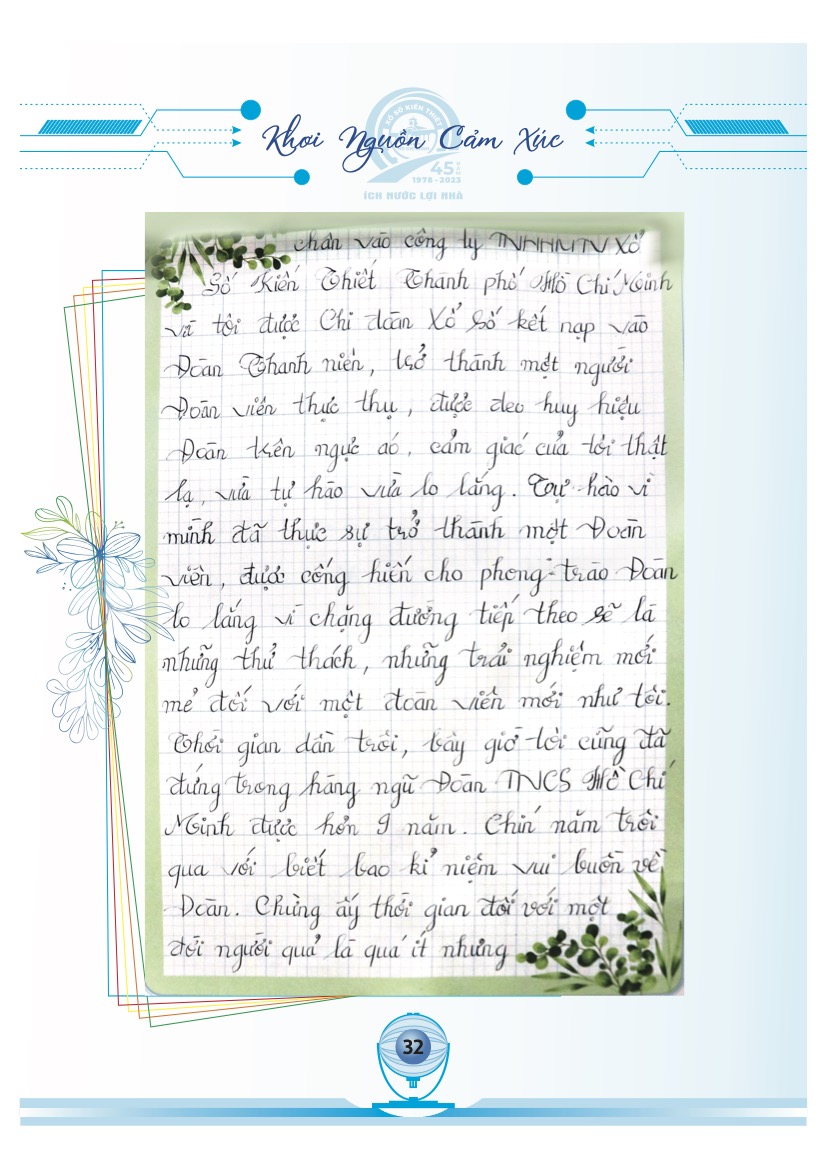 Khơi Nguồn Cảm Xúc
XỔ SỐ KIẾN THIẾT
45 NĂM
1978 - 2023
ÍCH NƯỚC LỢI NHÀ
chân vào công ty TNHHMTV Xổ
Số Kiến Thiết Thành phố Hồ Chí Minh
và tôi được Chi đoàn Xổ Số kết nạp vào
Đoàn Thanh niên, trở thành một người
Đoàn viên thực thụ, được đeo huy hiệu
Đoàn trên ngực áo, cảm giác của tôi thật
lạ, vừa tự hào vừa lo lắng. Tự hào vì
mình đã thực sự trở thành một Đoàn
viên, được cống hiến cho phong trào Đoàn
lo lắng vì chặng đường tiếp theo sẽ là
những thử thách, những trải nghiệm mới
mẻ đối với một đoàn viên mới như tôi.
Thời gian dần trôi, bây giờ tôi cũng đã
đứng trong hàng ngũ Đoàn TNCS Hồ Chí
Minh được hơn 9 năm. Chín năm trôi
qua với biết bao kỉ niệm vui buồn về
Đoàn. Chừng ấy thời gian đối với một
đời người quả là quá ít nhưng
32